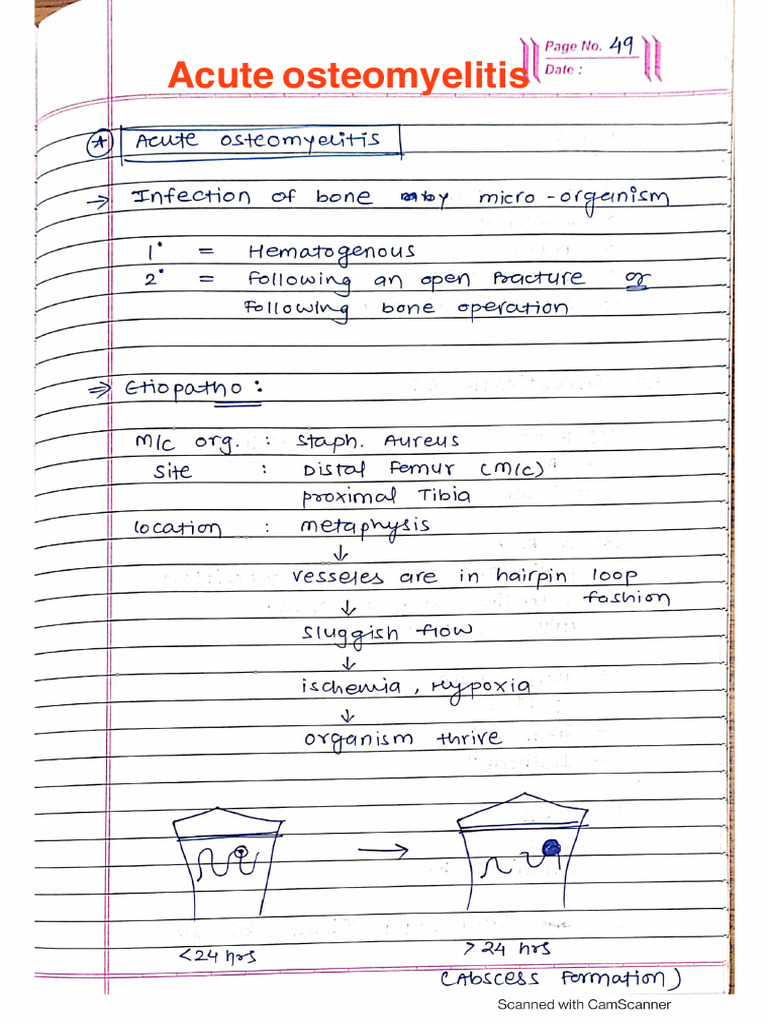 Page No. 49
Date :
Acute osteomyelitis
Acute osteomyelitis
→ Infection of bone by micro-organism
1° = Hematogenous
2° = Following an open fracture or
Following bone operation
⇒ Etiopatho :
M/c org. : Staph. Aureus
Site : Distal Femur (M/c)
proximal Tibia
location : metaphysis
↓
vesseles are in hairpin loop
fashion
↓
sluggish flow
↓
ischemia, Hypoxia
↓
organism thrive
→
<24 hrs
> 24 hrs
(Abscess Formation)
Scanned with CamScanner